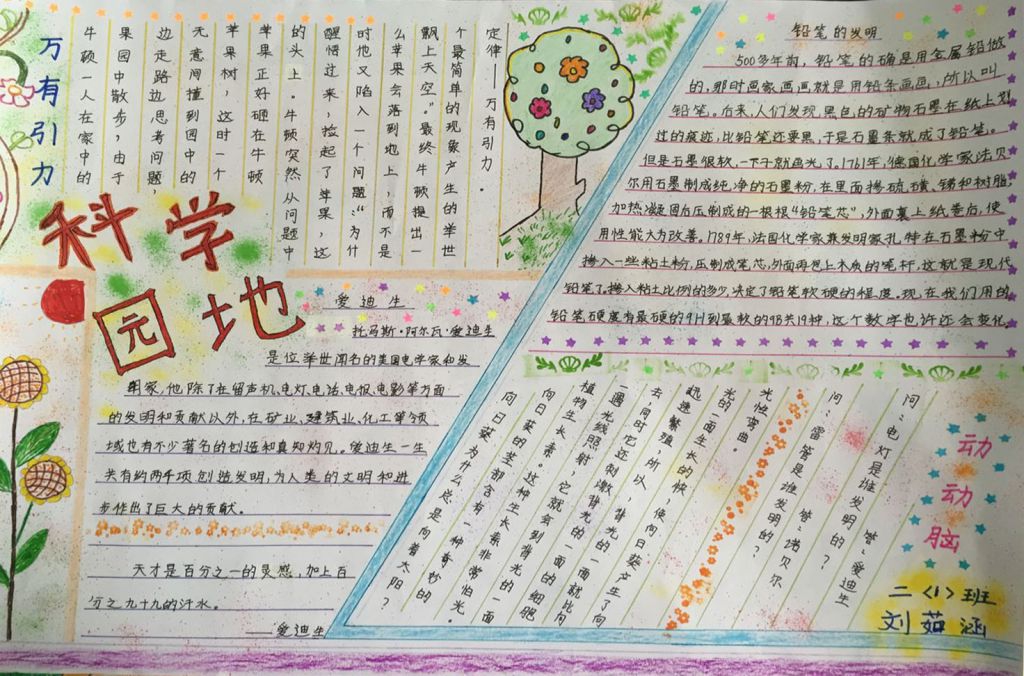 万有引力
牛顿一人在家中的
果园中散步，由于
边走路边思考问题，
无意间撞到园中的
苹果树，这时一个
苹果正好砸在牛顿
的头上。牛顿突然从问题中
醒悟过来，捡起了苹果，这
时他又陷入一个问题：“为什
么苹果会落到地上，而不是
飘上天空。”最终牛顿提出一
个最简单的现象产生的举世
定律——万有引力．
科学
园地
铅笔的发明
500多年前，铅笔的确是用金属铅做
的，那时画家画画就是用铅条画画，所以叫
铅笔。后来，人们发现黑色的矿物石墨在纸上划
过的痕迹，比铅笔还要黑，于是石墨条就成了铅笔。
但是石墨很软，一下子就画光了。1761年，德国化学家法贝
尔用石墨制成纯净的石墨粉，在里面掺硫磺、锑和树脂，
加热凝固后压制成的一根根“铅笔芯”，外面裹上纸卷后，使
用性能大为改善，1789年，法国化学家兼发明家孔特在石墨粉中
掺入一些粘土粉，压制成笔芯，外面再包上木质的笔杆，这就是现代
铅笔了。掺入粘土比例的多少决定了铅笔软硬的程度。现在我们用的
铅笔硬度有最硬的9H到最软的9B共19种，这个数字也许还会变化。
爱迪生
托马斯·阿尔瓦·爱迪生
是位举世闻名的美国电学家和发
明家，他除了在留声机、电灯、电话、电报、电影等方面
的发明和贡献以外，在矿业、建筑业、化工等领
域也有不少著名的创造和真知灼见。爱迪生一生
共有约两千项创造发明，为人类的文明和进
步作出了巨大的贡献。
天才是百分之一的灵感，加上百
分之九十九的汗水。
——爱迪生
动动脑
问：电灯是谁发明的？ 答：爱迪生
问：雷管是谁发明的？ 答：诺贝尔
向日葵为什么总是向着太阳？
向日葵的茎部含有一种奇妙的
植物生长素。这种生长素非常怕光。
一遇光线照射，它就会到背光的一面
去，同时它还刺激背光的一面的细胞
迅速繁殖，所以，背光的一面就比向
光的一面生长的快，使向日葵产生了向
光性弯曲。
二〈1〉班
刘茹涵